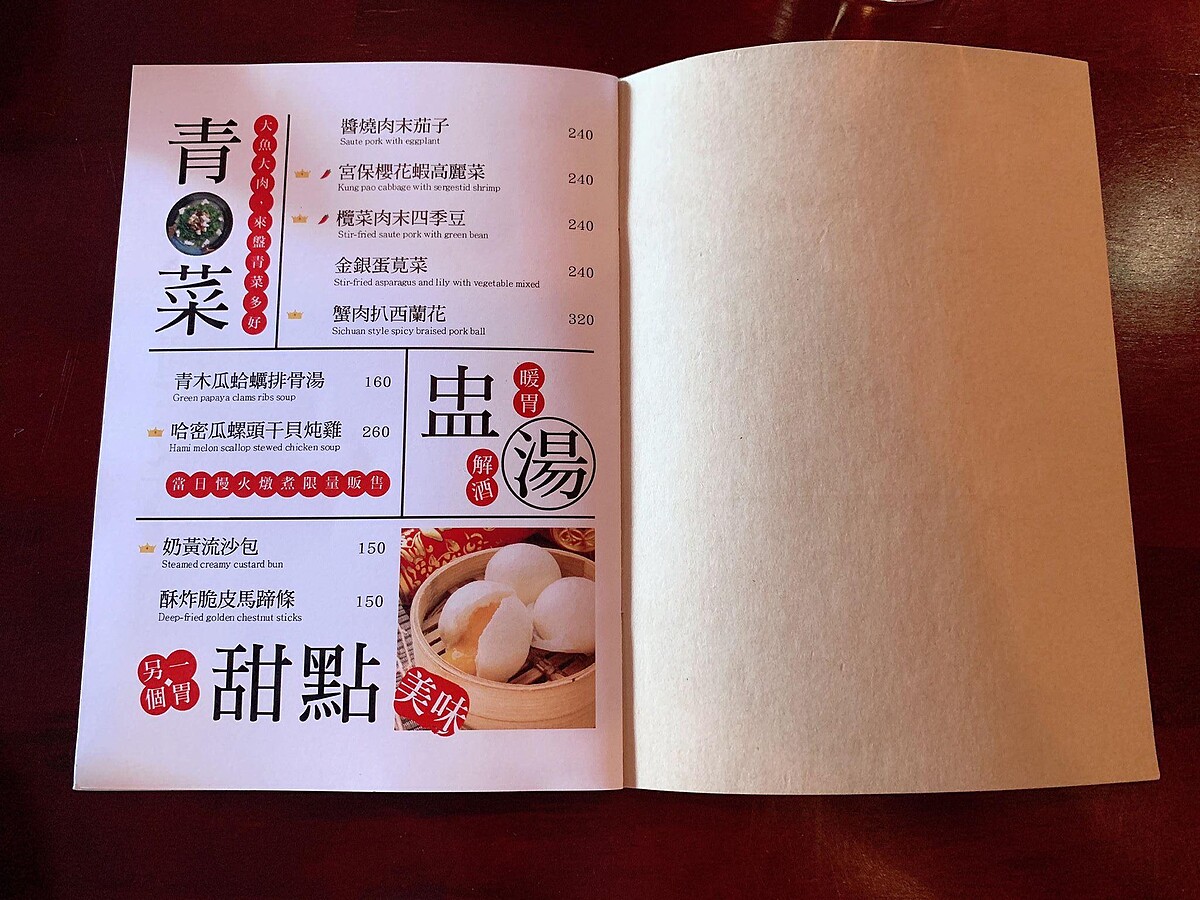 青菜
大魚大肉·來盤青菜多好
醬燒肉末茄子 240
Saute pork with eggplant
宮保櫻花蝦高麗菜 240
Kung pao cabbage with sergestid shrimp
欖菜肉末四季豆 240
Stir-fried saute pork with green bean
金銀蛋莧菜 240
Stir-fried asparagus and lily with vegetable mixed
蟹肉扒西蘭花 320
Sichuan style spicy braised pork ball
青木瓜蛤蠣排骨湯 160
Green papaya clams ribs soup
哈密瓜螺頭干貝炖雞 260
Hami melon scallop stewed chicken soup
當日慢火燉煮限量販售
盅湯
暖胃
解酒
奶黃流沙包 150
Steamed creamy custard bun
酥炸脆皮馬蹄條 150
Deep-fried golden chestnut sticks
另一個胃
甜點
美味